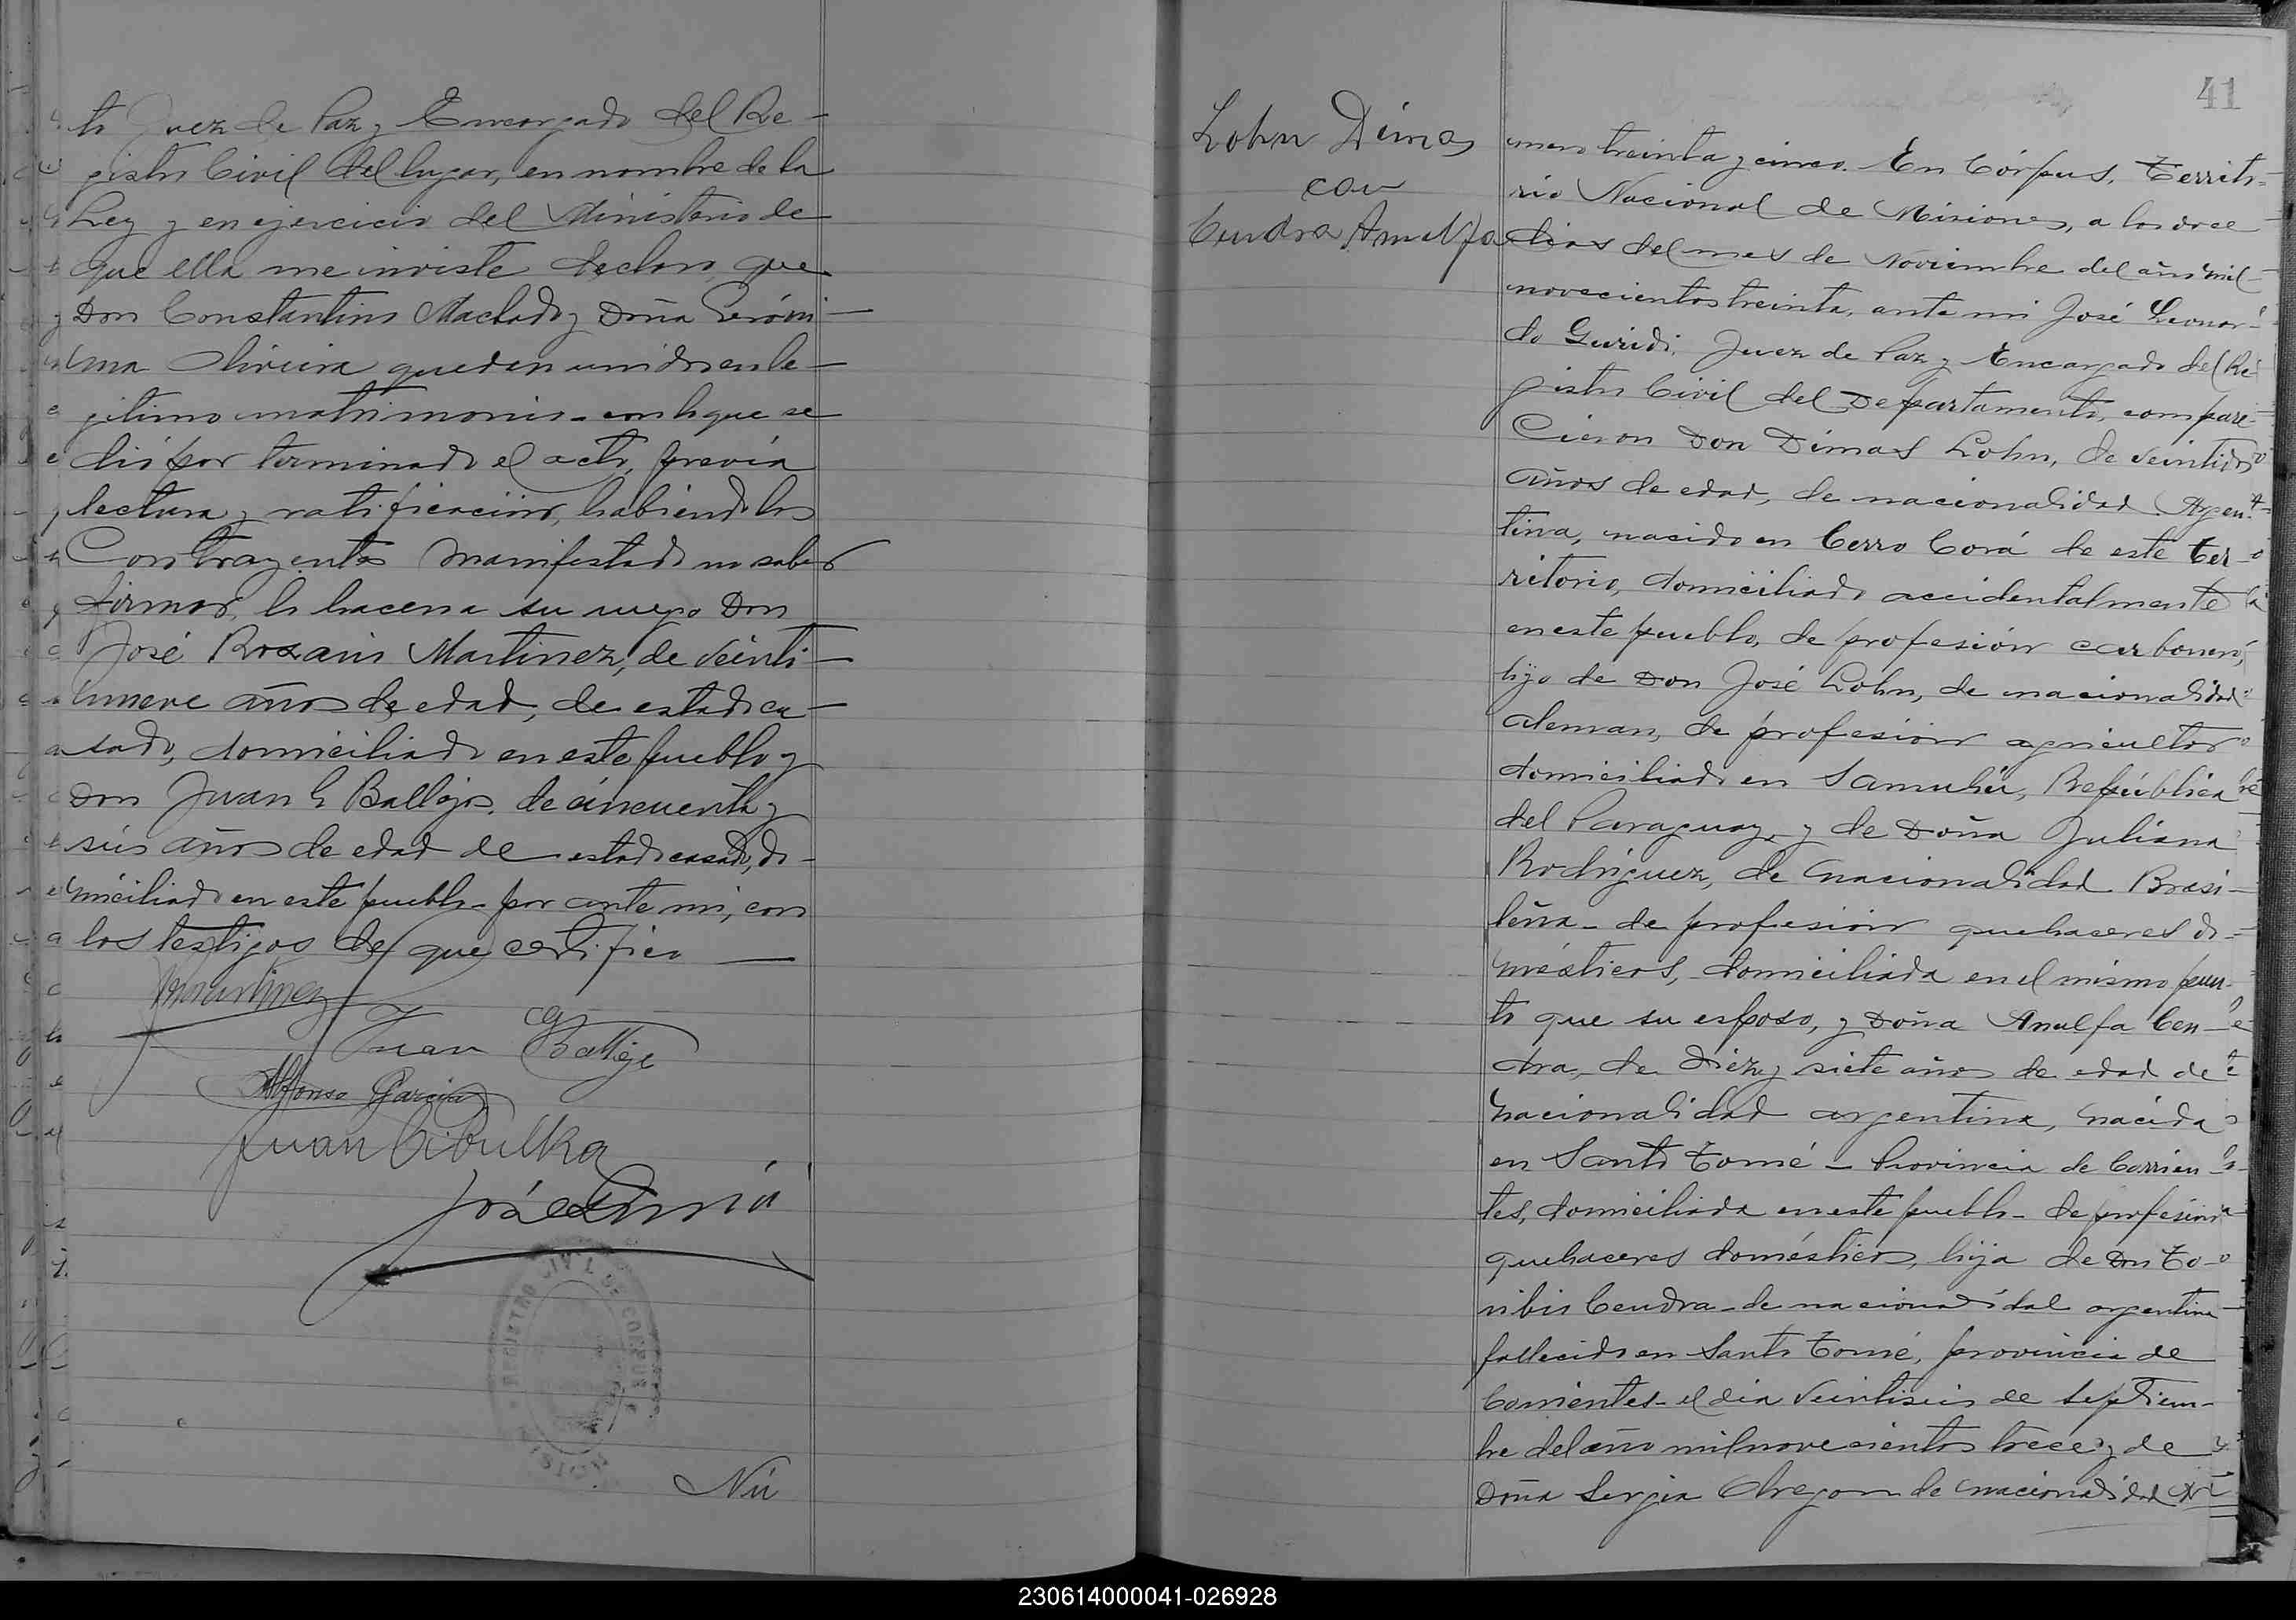 to Juez de Paz y Encargado del Re-
gistro Civil del lugar, en nombre de la
Ley y en ejercicio del Ministerio de
que ella me inviste declaro, que
Don Constantino Machado y Doña Geróni-
ma Oliveira quedan unidos en le-
gitimo matrimonio - con lo que se
dió por terminado el acto, previa
lectura y ratificación, habiendo los
Contrayentes manifestado no saber
firmar, lo hacen a su ruego Don
José Rosario Martinez, de veinti-
nueve años de edad, de estado ca-
sado, domiciliado en este pueblo y
Don Juan G Ballejos, de cincuenta y
seis años de edad de estado casado, do-
miciliado en este pueblo - por ante mi, con
los testigos de que certifico
Juan G Ballejo
Alfonso Garcia
Juan Cibulka
REGISTRO CIVIL DE CORPUS
Nú
41
Lohn Dimas
con
Cendra Anulfa
mero treinta y cinco. En Córpus, Territo-
rio Nacional de Misiones, a los doce
dias del mes de Noviembre del año mil
novecientos treinta, ante mi José Leonar-
do Guridi, Juez de Paz y Encargado del Re-
gistro Civil del Departamento, compare-
cieron Don Dimas Lohn, de veintidos
años de edad, de nacionalidad Argen-
tina, nacido en Cerro Corá de este Ter-
ritorio, domiciliado accidentalmente
en este pueblo, de profesión carbonero,
hijo de Don José Lohn, de nacionalidad
aleman, de profesión agricultor
domiciliado en Samuhú, República
del Paraguay, y de Doña Juliana
Rodriguez, de nacionalidad Brasi-
leña - de profesión quehaceres do-
mésticos, domiciliada en el mismo pun-
to que su esposo, y Doña Anulfa Cen-
dra, de Diez y siete años de edad de
nacionalidad argentina, nacida
en Santo Tomé - Provincia de Corrien-
tes, domiciliada en este pueblo - de profesion
quehaceres domésticos, hija de Don To-
ribio Cendra - de nacionalidad argentina
fallecido en Santo Tomé, provincia de
Corrientes - el dia veintiseis de septiem-
bre del año mil novecientos trece y de
Doña Sergia Obregon de nacionalidad Ar
230614000041-026928